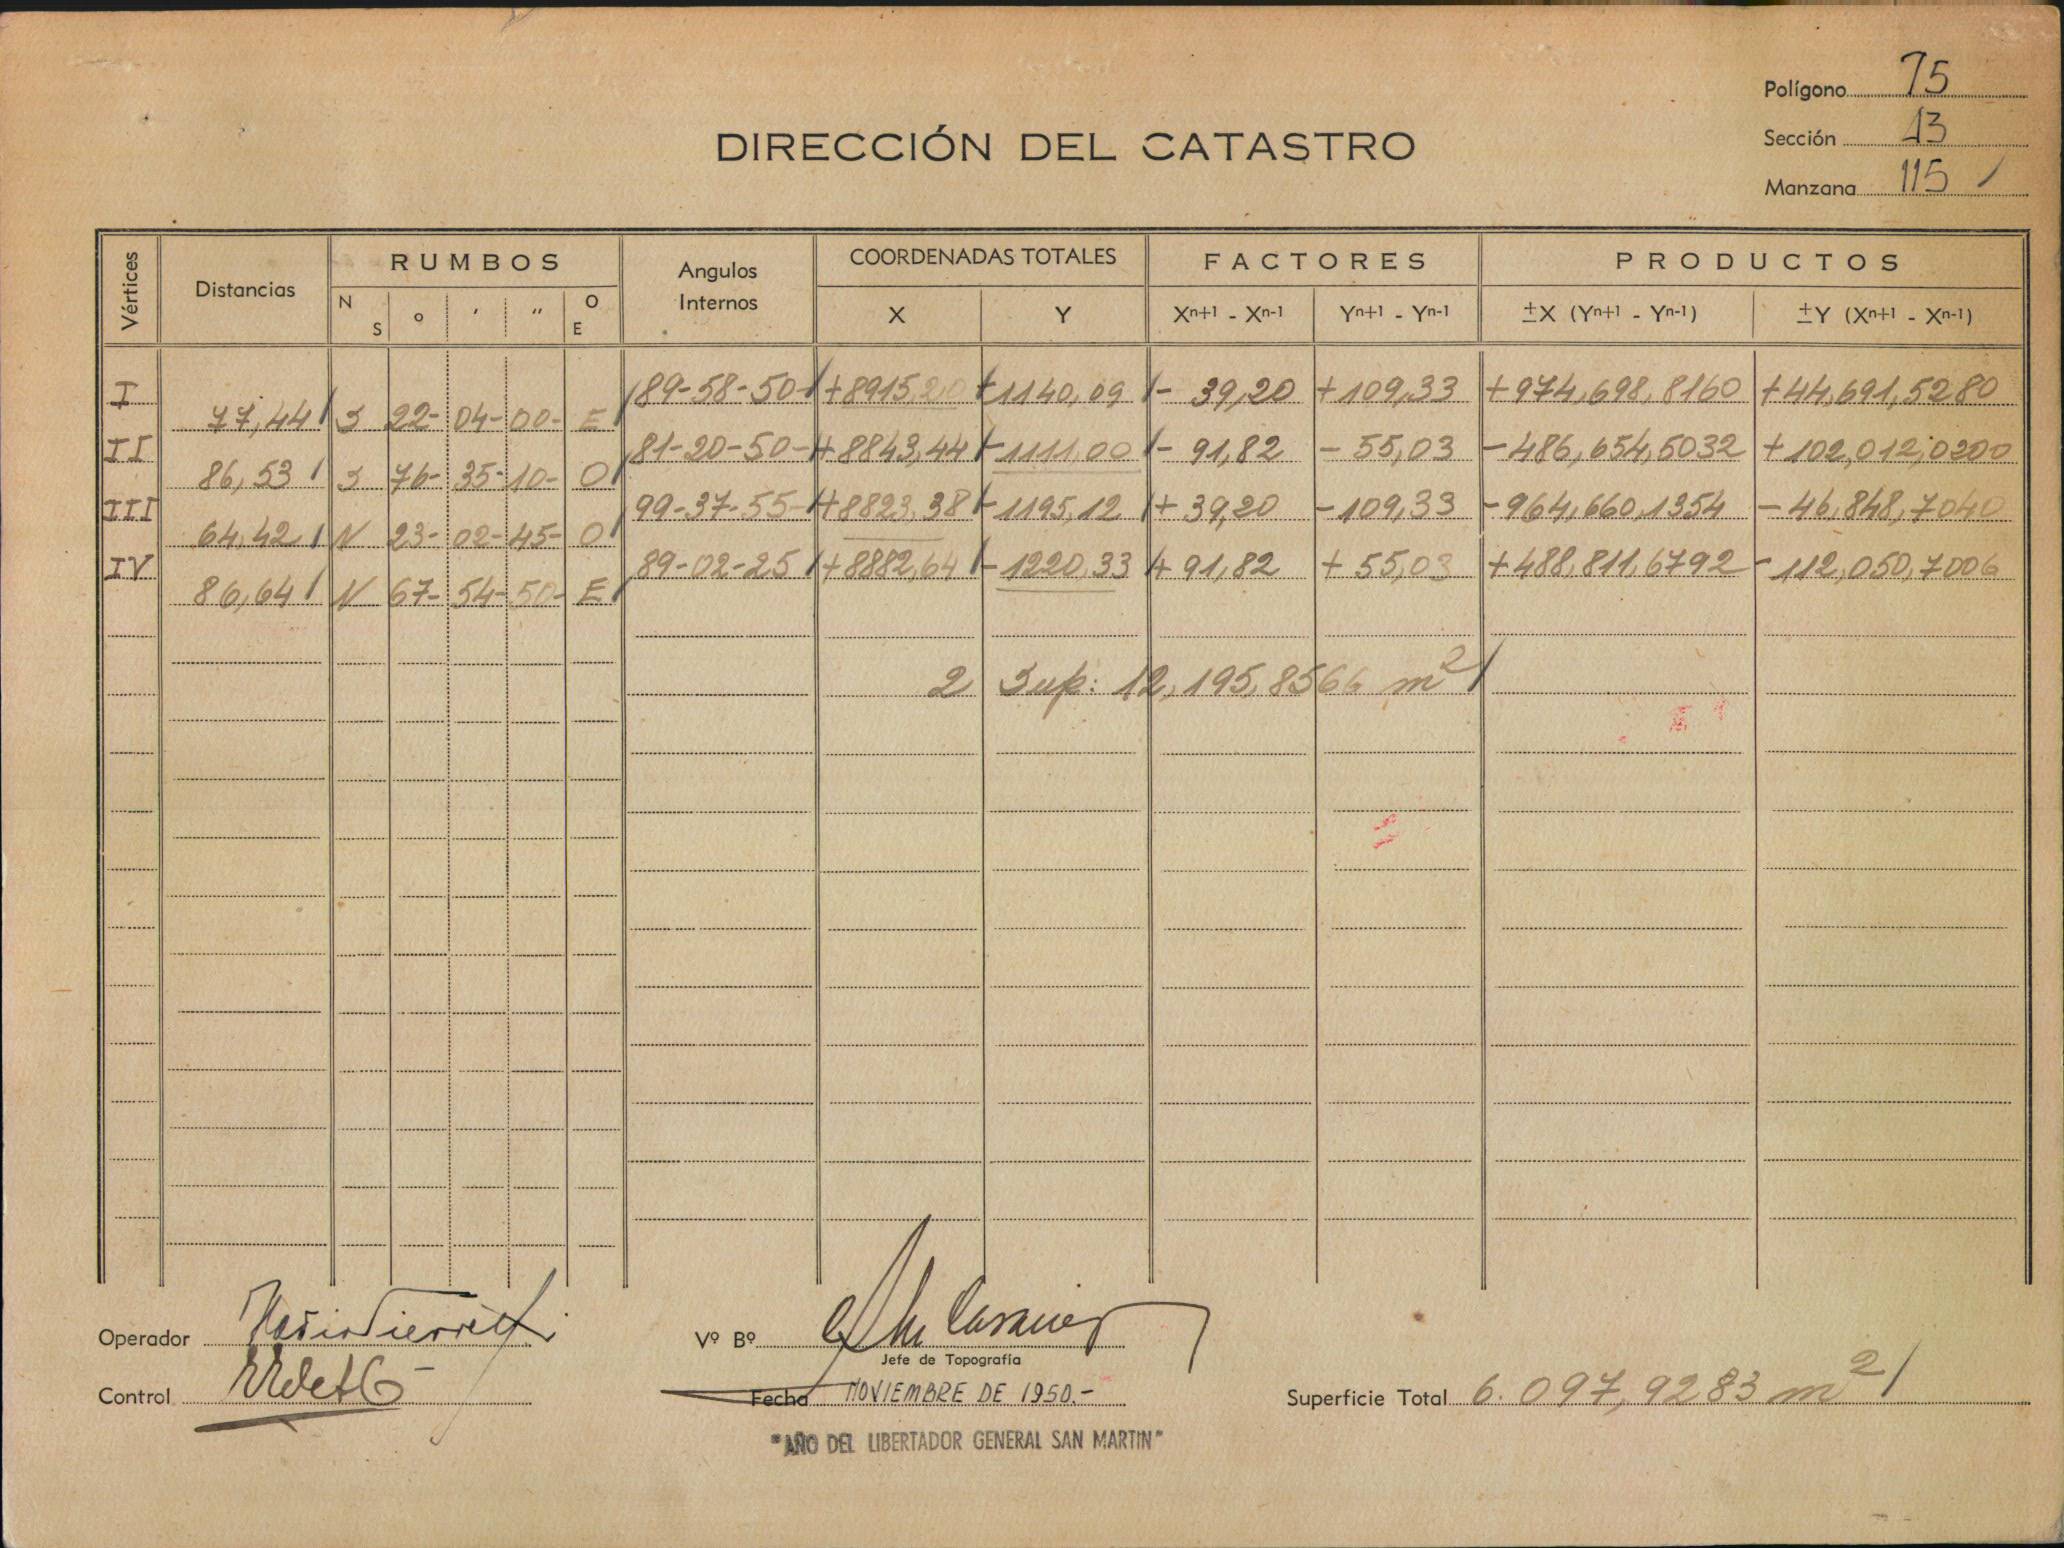 Polígono 75
DIRECCIÓN DEL CATASTRO
Sección 13
Manzana 115 /
Vértices Distancias RUMBOS Angulos Internos COORDENADAS TOTALES FACTORES PRODUCTOS
N S o ' " O E X Y Xn+1 - Xn-1 Yn+1 - Yn-1 ±X (Yn+1 - Yn-1) ±Y (Xn+1 - Xn-1)
I 89-58-50- +8915,20 -1140,09 - 39,20 +109,33 +974,698,8160 +44,691,5280
77,44 S 22- 04- 00- E
II 81-20-50- +8843,44 -1111,00 - 91,82 - 55,03 -486,654,5032 +102,012,0200
86,53 S 76- 35- 10- O
III 99-37-55- +8823,38 -1195,12 + 39,20 -109,33 -964,660,1354 -46,848,7040
64,42 N 23- 02- 45- O
IV 89-02-25 +8882,64 -1220,33 + 91,82 + 55,03 +488,811,6792 -112,050,7006
86,64 N 67- 54- 50- E
2 Sup: 12,195,8566 m2
Operador
Vº Bº
Jefe de Topografía
Control
Fecha NOVIEMBRE DE 1950.-
Superficie Total 6.097,9283 m2
"AÑO DEL LIBERTADOR GENERAL SAN MARTIN"